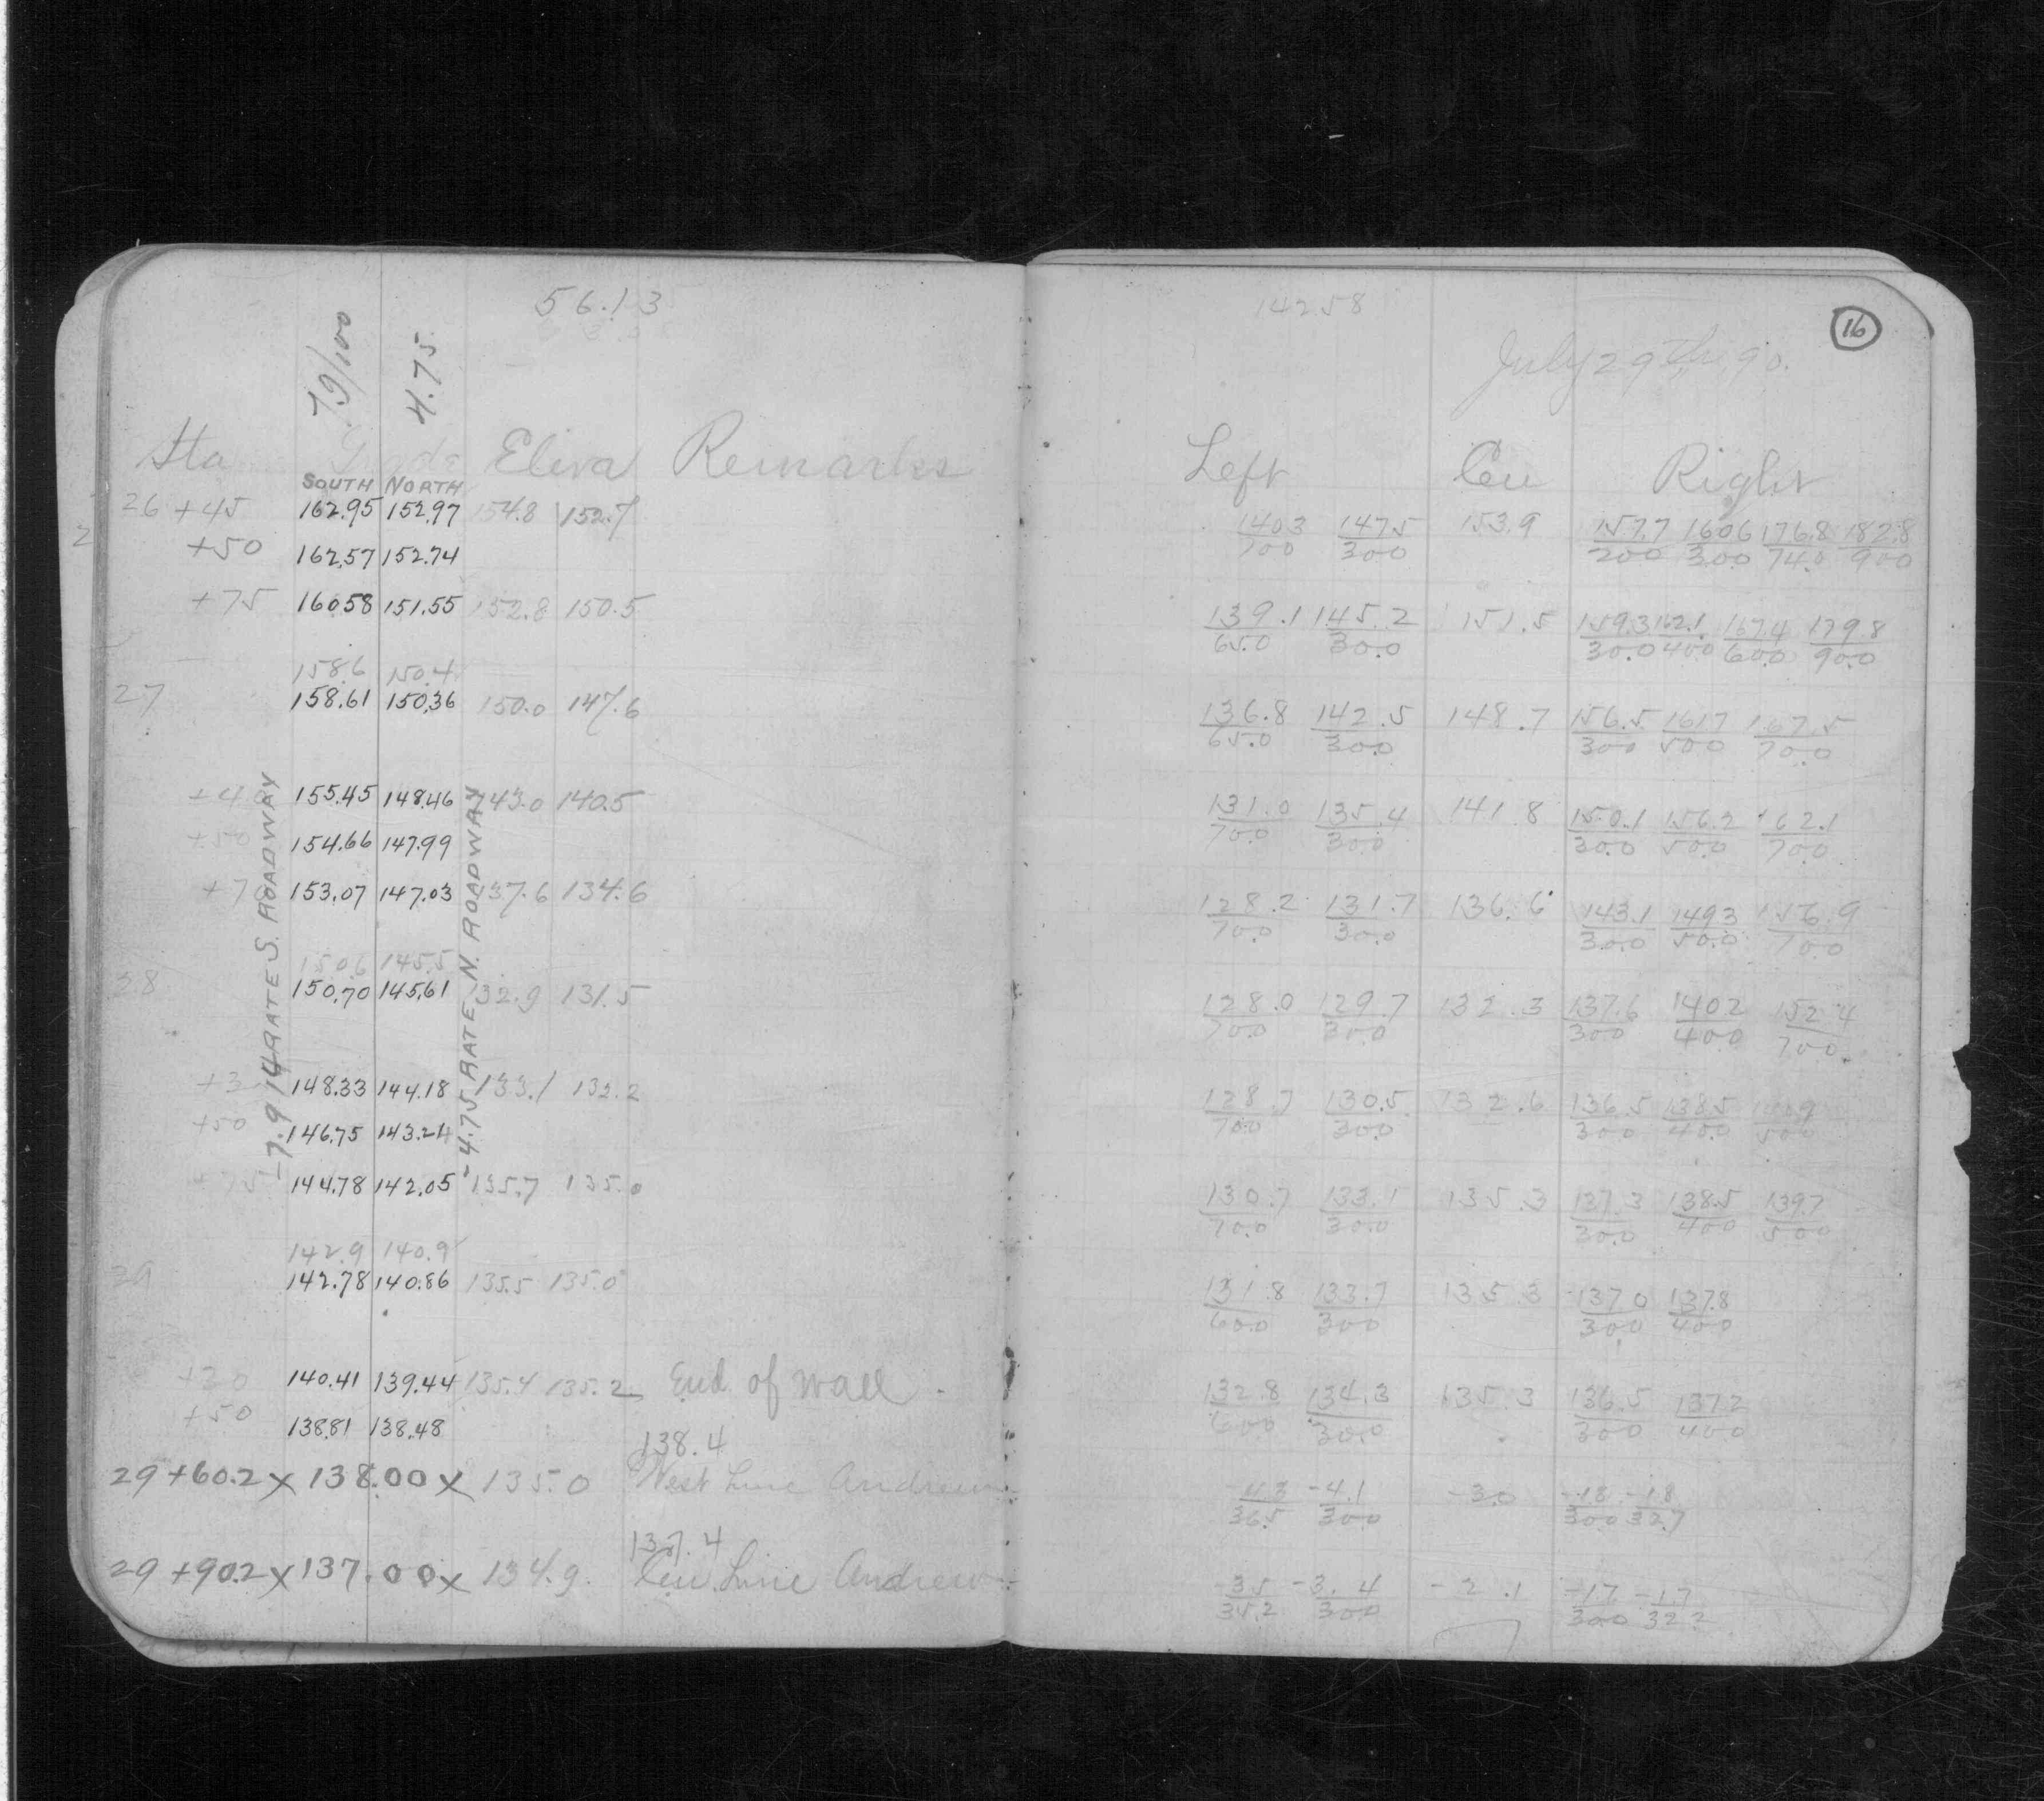 56.13
7.9/100
4.75
Sta Grade Eleva Remarks
SOUTH NORTH
26 +45 162.95 152.97 154.8 152.7
+50 162.57 152.74
+75 160.58 151.55 152.8 150.5
158.6 150.4
27 158.61 150.36 150.0 147.6
+40 155.45 148.46 143.0 140.5
+50 154.66 147.99
+70 153.07 147.03 137.6 134.6
150.6 145.5
28 150.70 145.61 132.9 131.5
+30 148.33 144.18 133.1 132.2
+50 146.75 143.24
+75 144.78 142.05 135.7 135.0
142.9 140.9
29 142.78 140.86 135.5 135.0
+30 140.41 139.44 135.4 135.2 End of wall
+50 138.81 138.48
138.4
29 +60.2 x 138.00 x 135.0 West Line Andrew
137.4
29 +90.2 x 137.00 x 134.9. Cen. Line Andrew
-7.914 RATE S. ROADWAY
-4.75 RATE N. ROADWAY
16
142.58
July 29th, 90.
Left Cen Right
140.3 147.5 153.9 157.7 160.6 176.8 182.8
70.0 30.0 20.0 30.0 74.0 90.0
139.1 145.2 151.5 159.3 162.1 167.4 179.8
65.0 30.0 30.0 40.0 60.0 90.0
136.8 142.5 148.7 156.5 161.7 167.5
65.0 30.0 30.0 50.0 70.0
131.0 135.4 141.8 150.1 156.2 162.1
70.0 30.0 30.0 50.0 70.0
128.2 131.7 136.6 143.1 149.3 156.9
70.0 30.0 30.0 50.0 70.0
128.0 129.7 132.3 137.6 140.2 152.4
70.0 30.0 30.0 40.0 70.0
128.7 130.5 132.6 136.5 138.5
70.0 30.0 30.0 40.0 50.0
130.7 133.1 135.3 137.3 138.5 139.7
70.0 30.0 30.0 40.0 50.0
131.8 133.7 135.3 137.0 137.8
60.0 30.0 30.0 40.0
132.8 134.3 135.3 136.5 137.2
60.0 30.0 30.0 40.0
-4.3 -4.1 -3.0 -1.8 -1.8
36.5 30.0 30.0 32.7
-3.5 -3.4 -2.1 -1.7 -1.7
35.2 30.0 30.0 32.2